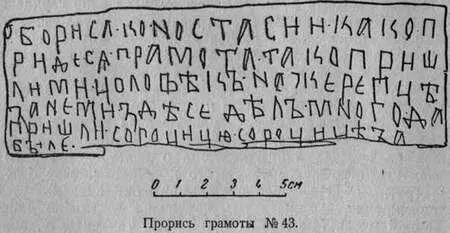 Ѿ БОРИСА·КО·NОСТАСИИ·КАКО П
РИДЕСА·ГРАМОТА·ТАКО ПРИШ
ЛИ МИ ЦОЛОВѢКЪ·NАЖЕРЕПЦѢ
ЗАNЕМИЗДѢСЕ ДѢЛЪ·МNОГОДА
ПРИШЛИ·СОРОЦИЦЮ·СОРОЦИЦѢЗА
БЪІЛЕ·
0 1 2 3 4 5см
Прорись грамоты № 43.